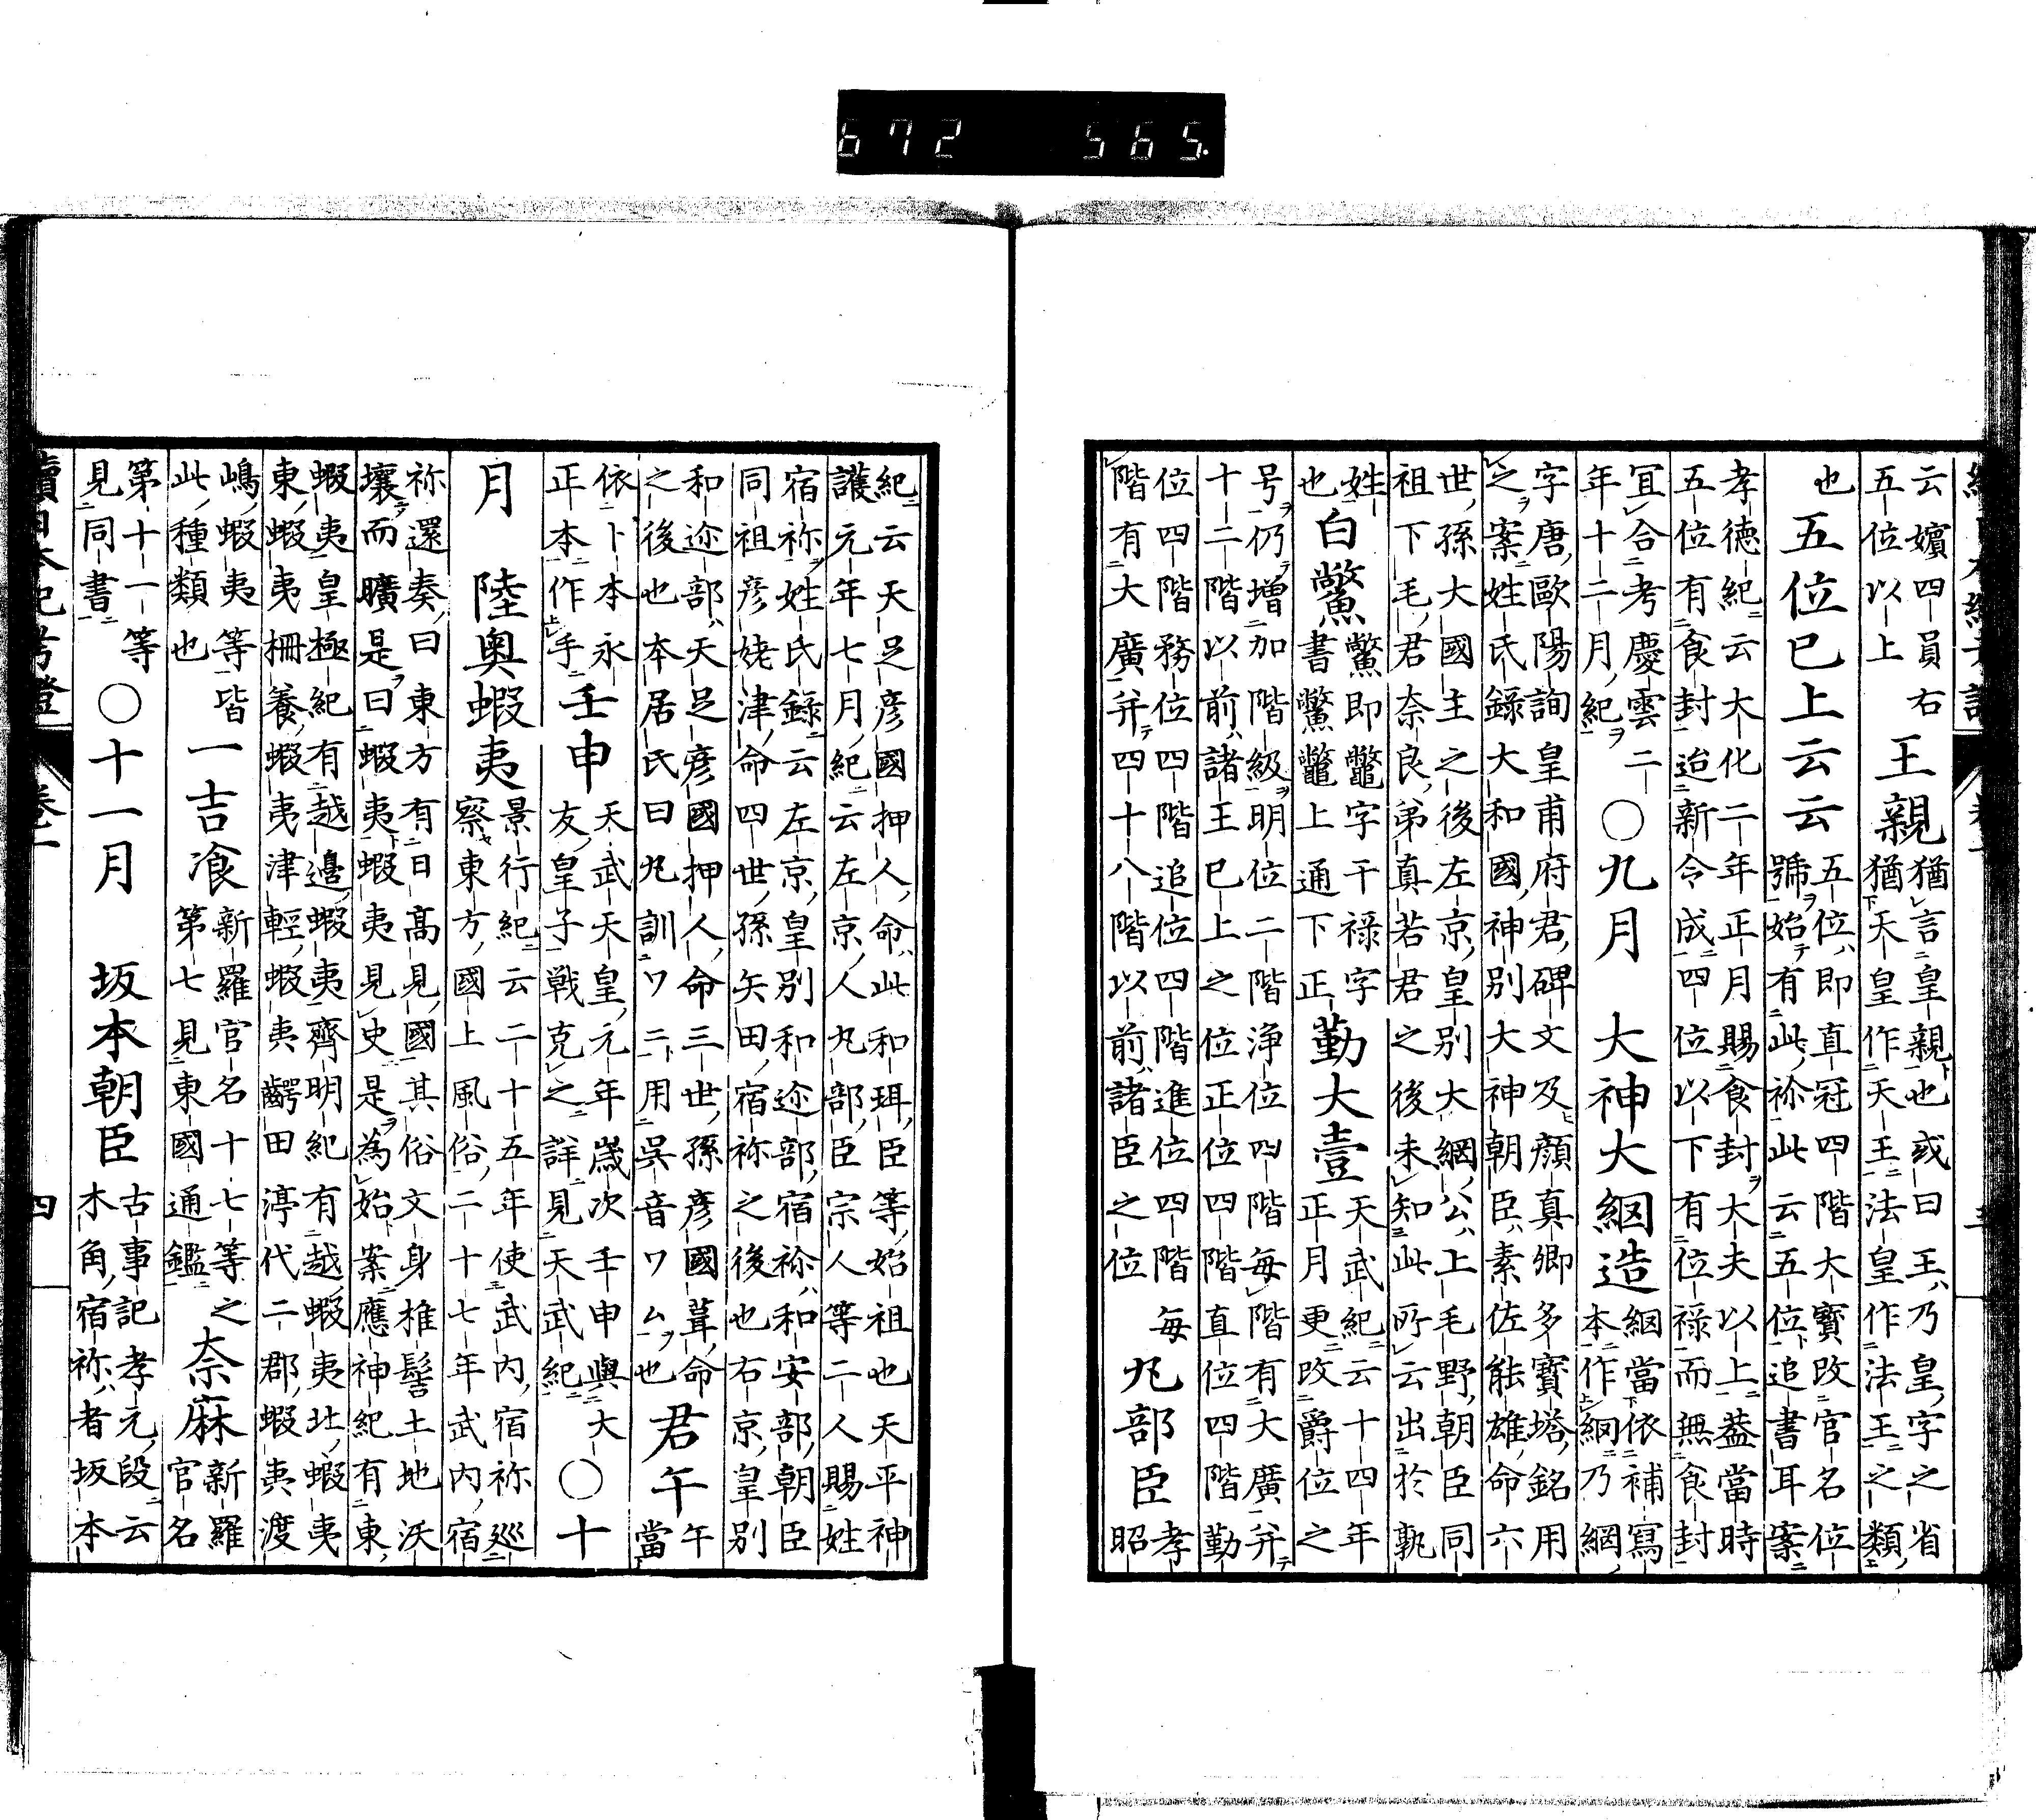 云嬪四員右
五位以上
王親
猶言皇親也或曰王乃皇字之省
猶天皇作天王法皇作法王之類
也
五位已上云云
五位即直冠四階大寶改官名位
號始有此袮此云五位追書耳案
孝德紀云大化二年正月賜食封大夫以上蓋當時
五位有食封迨新令成四位以下有位祿而無食封
冝合考慶雲二
年十二月紀
○九月　大神大綱造
綱當依補寫
本作䌉乃綱
字唐歐陽詢皇甫府君碑文及顔真卿多寶塔銘用
之案姓氏錄大和國神別大神朝臣素佐能雄命六
世孫大國主之後左京皇別大網公上毛野朝臣同
祖下毛君奈良弟真若君之後未知此所云出於孰
姓
也
白鱉
鱉即鼈字干祿字
書鱉鼈上通下正
勤大壹
天武紀云十四年
正月更改爵位之
号仍增加階級明位二階浄位四階每階有大廣并
十二階以前諸王已上之位正位四階直位四階勤
位四階務位四階追位四階進位四階每
階有大廣并四十八階以前諸臣之位
丸部臣
孝
昭
紀云天足彦國押人命此和珥臣等始祖也天平神
護元年七月紀云左京人丸部臣宗人等二人賜姓
宿祢姓氏錄云左京皇別和迩部宿祢和安部朝臣
同祖彦姥津命四世孫矢田宿祢之後也右京皇別
和迩部天足彦國押人命三世孫彦國葺命
之後也本居氏曰丸訓ワニ用吳音ワム也
君午
午
當
依卜本永
正本作手
壬申
天武天皇元年歳次壬申與大
友皇子戦克之詳見天武紀
○十
月　陸奥蝦夷
景行紀云二十五年使武内宿祢巡
察東方國上風俗二十七年武内宿
祢還奏曰東方有日高見國其俗文身椎髻土地沃
壤而曠是曰蝦夷蝦夷見史是為始案應神紀有東
蝦夷皇極紀有越邊蝦夷齊明紀有越蝦夷北蝦夷
東蝦夷柵養蝦夷津輕蝦夷齶田渟代二郡蝦夷渡
嶋蝦夷等皆
此種類也
一吉飡
新羅官名十七等之
第七見東國通鑑
奈麻
新羅
官名
第十一等
見同書
○十一月　坂本朝臣
古事記孝元段云
木角宿祢者坂本
續日本紀考證　卷一　四